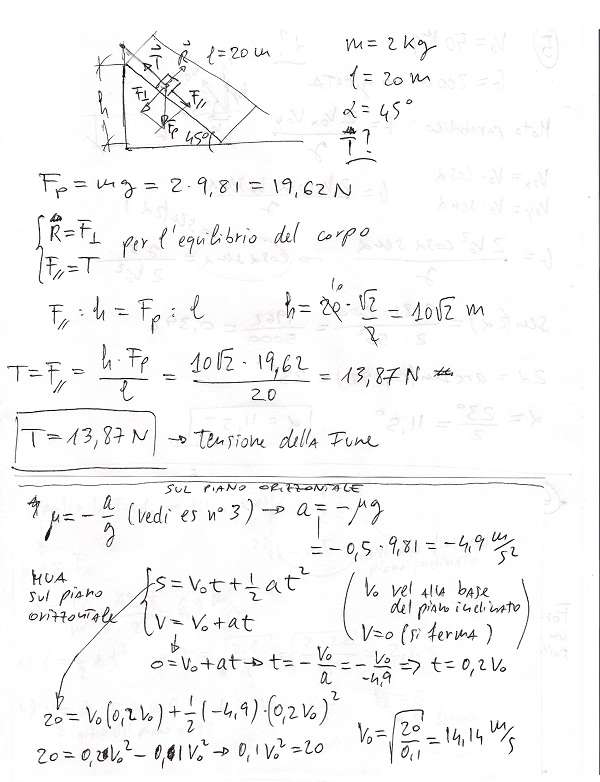 l = 20 m
m = 2 kg
T⃗ R⃗
l = 20 m
h F⊥ F//
α = 45°
Fp 45°
T ?
Fp = mg = 2 · 9,81 = 19,62 N
{ R = F⊥
per l'equilibrio del corpo
F// = T
F// : h = Fp : l h = 20 · √2/2 = 10√2 m
10
T = F// = h · Fp / l = 10√2 · 19,62 / 20 = 13,87 N
T = 13,87 N → tensione della fune
SUL PIANO ORIZZONTALE
μ = - a/g (vedi es n° 3) → a = -μg
= -0,5 · 9,81 = -4,9 m/s²
MUA
sul piano
orizzontale
{ S = V₀t + 1/2 at²
V = V₀ + at
( V₀ vel alla base
del piano inclinato
V = 0 (si ferma) )
0 = V₀ + at → t = - V₀/a = - V₀/-4,9 ⇒ t = 0,2 V₀
20 = V₀(0,2V₀) + 1/2 (-4,9) · (0,2V₀)²
20 = 0,2V₀² - 0,1V₀² → 0,1V₀² = 20
V₀ = √20/0,1 = 14,14 m/s